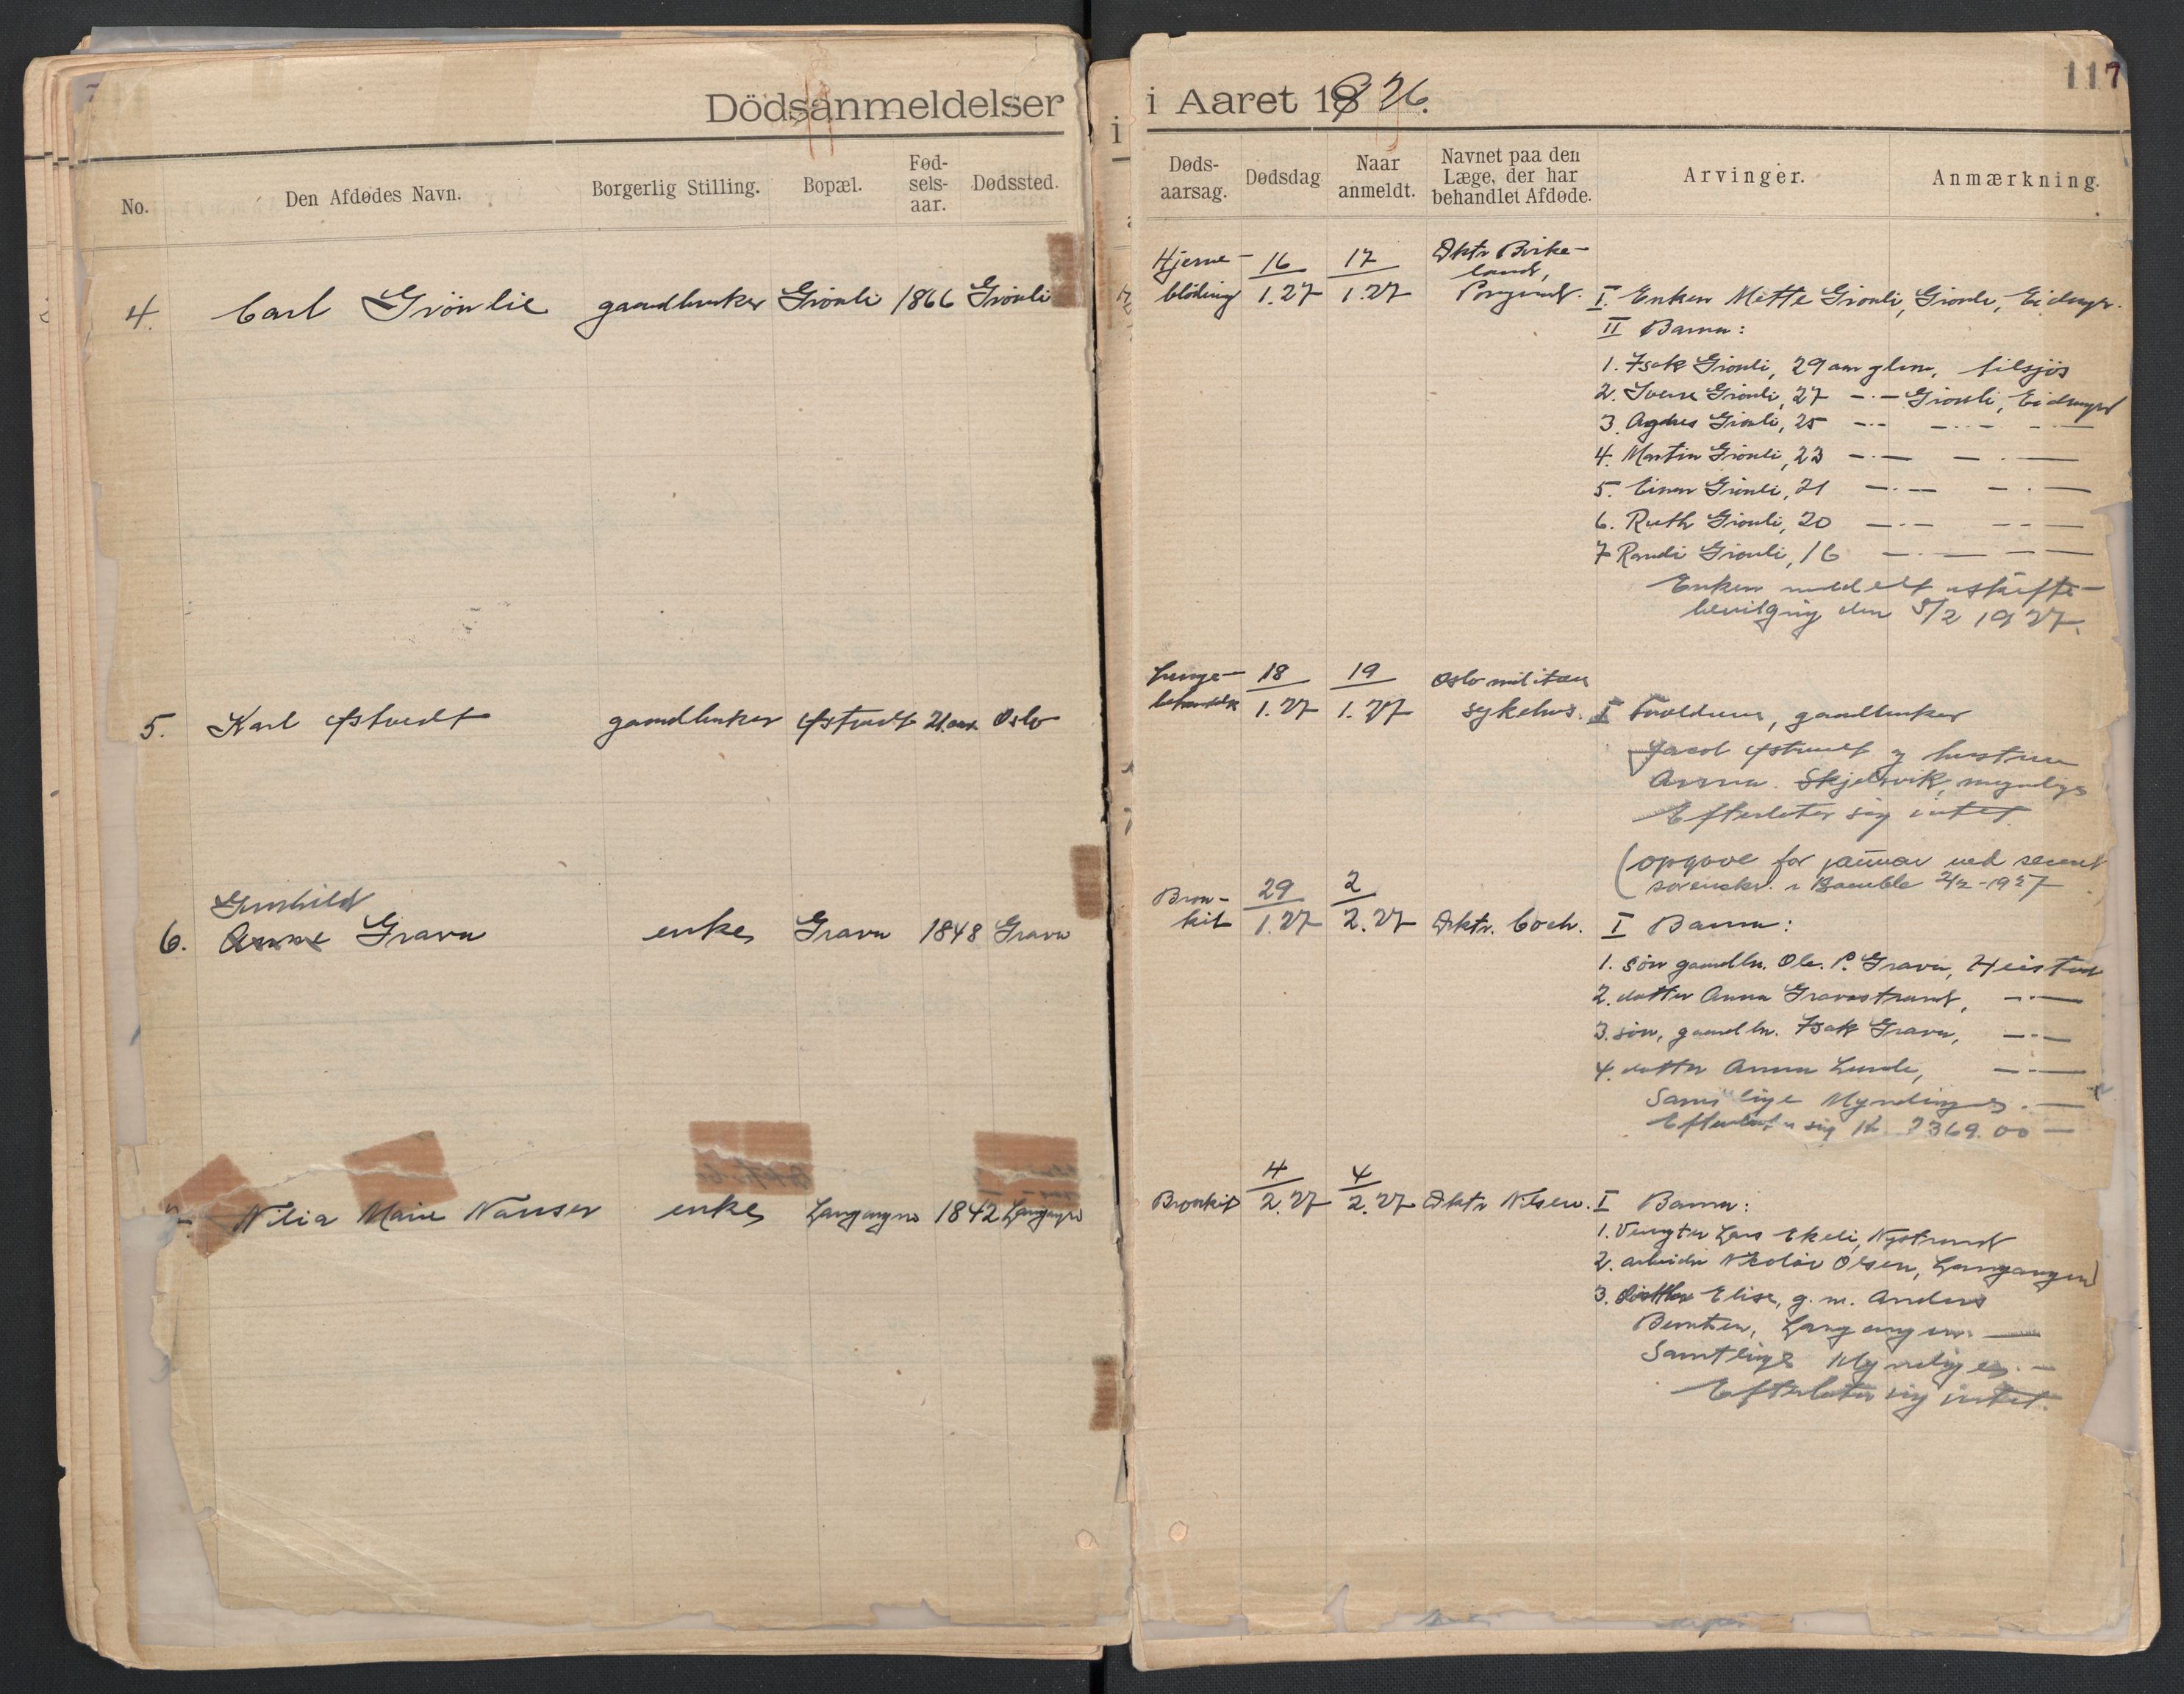 117
Dödsanmeldelser i Aaret 1926.
No.
Den Afdødes Navn.
Borgerlig Stilling.
Bopæl.
Fød-
sels-
aar.
Dødssted.
Døds-
aarsag.
Dødsdag
Naar
anmeldt.
Navnet paa den
Læge, der har
behandlet Afdøde.
Arvinger.
Anmærkning.
4. Carl Grönlie gaardbruker Grönli 1866 Grönli
Hjerne-
blöding
16
1.27
17
1.27
Dktr Birke-
land,
Porsgrund.
I. Enken Mette Grönli, Grönli, Eidanger.
II Barna:
1. Isak Grönli, 29 aar glm, tilsjös
2. Sverre Grönli, 27 -"- Grönli, Eidanger
3. Agnes Grönli, 25 -"- -"-
4. Martin Grönli, 23 -"- -"-
5. Einar Grönli, 21 -"- -"-
6. Ruth Grönli, 20 -"- -"-
7 Randi Grönli, 16 -"- -"-
Enken meddelt uskifte-
bevilgning den 5/2 1927.
5. Karl Østvedt gaardbruker Østvedt 21 aar Oslo
Lunge-
betændelse
18
1.27
19
1.27
Oslo militær
sykehus.
I Forældrene, gaardbruker
Jacob Østvedt og hustru
Anna. Skjelsvik, myndige
Efterlater sig intet
(opgave for januar med sendt
sorenskr. i Bamble 2/2-1927
6. Gunhild
Anne Grava enke Grava 1848 Grava
Bron-
kit
29
1.27
2
2.27
Dktr. Coch.
I Barna:
1. sön gaardbr. Ole. P. Grava, Heistad
2. datter Anna Gravastrand, -"-
3. sön, gaardbr. Isak Grava, -"-
4. datter Anna Lunde, -"-
Samtlige Myndige. -
Efterlater sig kr 2369.00 -
7. Nilia Marie Nansen enke Langangen 1842 Langangen
Bronkit
4
2.27
4
2.27
Dktr Nilsen.
I Barna:
1. Vengter Lars Ekeli, Nystrand
2. arbeider Nicolai Olsen, Langangen
3. datter Elise, g. m. Anders
Berntsen, Langangen. -
Samtlige Myndige. -
Efterlater sig intet.